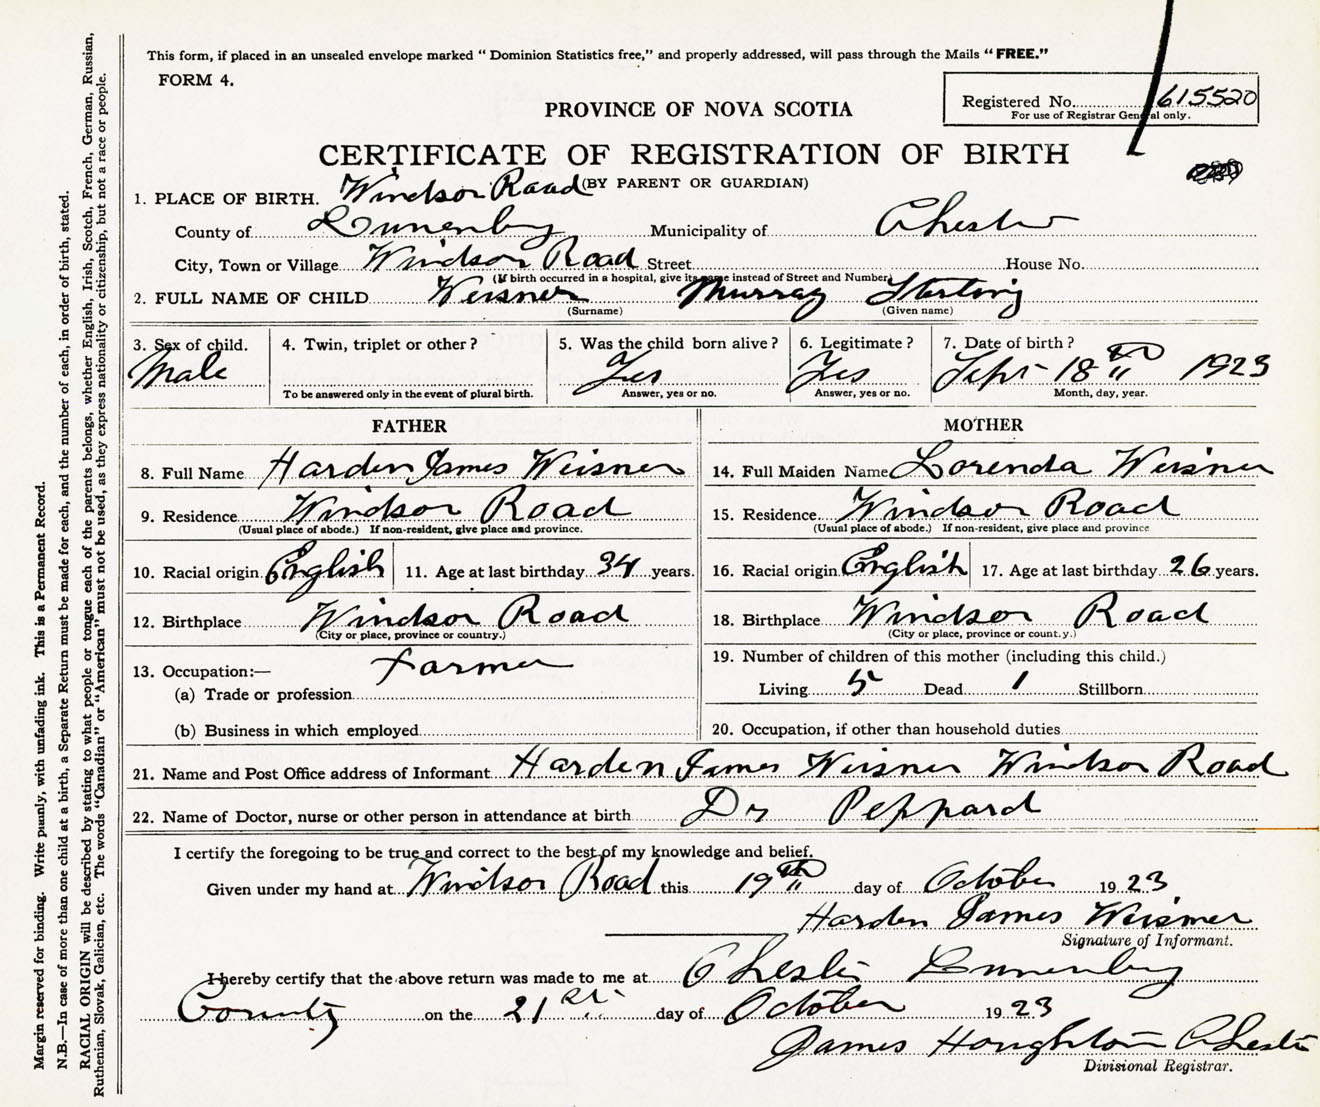 This form, if placed in an unsealed envelope marked " Dominion Statistics free," and properly addressed, will pass through the Mails "FREE."
FORM 4.
Registered No. 615520
For use of Registrar General only.
PROVINCE OF NOVA SCOTIA
CERTIFICATE OF REGISTRATION OF BIRTH
(BY PARENT OR GUARDIAN)
1. PLACE OF BIRTH. Windsor Road
County of Lunenburg Municipality of Chester
City, Town or Village Windsor Road Street House No.
(If birth occurred in a hospital, give its name instead of Street and Number)
2. FULL NAME OF CHILD Weisner Murray Sterling
(Surname) (Given name)
3. Sex of child. 4. Twin, triplet or other? 5. Was the child born alive? 6. Legitimate? 7. Date of birth?
Male Yes Yes Sept 18th 1923
To be answered only in the event of plural birth. Answer, yes or no. Answer, yes or no. Month, day, year.
FATHER MOTHER
8. Full Name Harden James Weisner 14. Full Maiden Name Lorenda Weisner
9. Residence Windsor Road 15. Residence Windsor Road
(Usual place of abode.) If non-resident, give place and province. (Usual place of abode.) If non-resident, give place and province
10. Racial origin English 11. Age at last birthday 34 years. 16. Racial origin English 17. Age at last birthday 26 years.
12. Birthplace Windsor Road 18. Birthplace Windsor Road
(City or place, province or country.) (City or place, province or country.)
13. Occupation:— Farmer 19. Number of children of this mother (including this child.)
(a) Trade or profession Living 5 Dead 1 Stillborn
(b) Business in which employed 20. Occupation, if other than household duties
21. Name and Post Office address of Informant Harden James Weisner Windsor Road
22. Name of Doctor, nurse or other person in attendance at birth Dr Peppard
I certify the foregoing to be true and correct to the best of my knowledge and belief.
Given under my hand at Windsor Road this 19th day of October 1923
Harden James Weisner
Signature of Informant.
I hereby certify that the above return was made to me at Chester Lunenburg
County on the 21st day of October 1923
James Houghton Chester
Divisional Registrar.
Margin reserved for binding. Write plainly, with unfading ink. This is a Permanent Record.
N.B.—In case of more than one child at a birth, a Separate Return must be made for each, and the number of each, in order of birth, stated.
RACIAL ORIGIN will be described by stating to what people or tongue each of the parents belongs, whether English, Irish, Scotch, French, German, Russian,
Ruthenian, Slovak, Galician, etc. The words "Canadian" or "American" must not be used, as they express nationality or citizenship, but not a race or people.